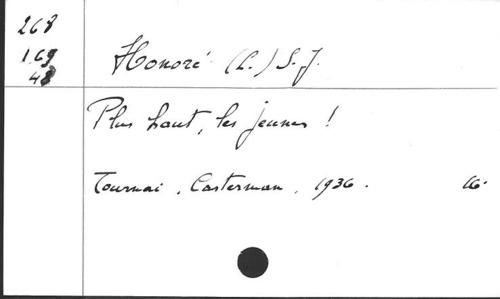 268
1.69
48
Honoré (L.) S.J.
Plus haut, les jeunes !
Tournai, Casterman, 1936.
16°